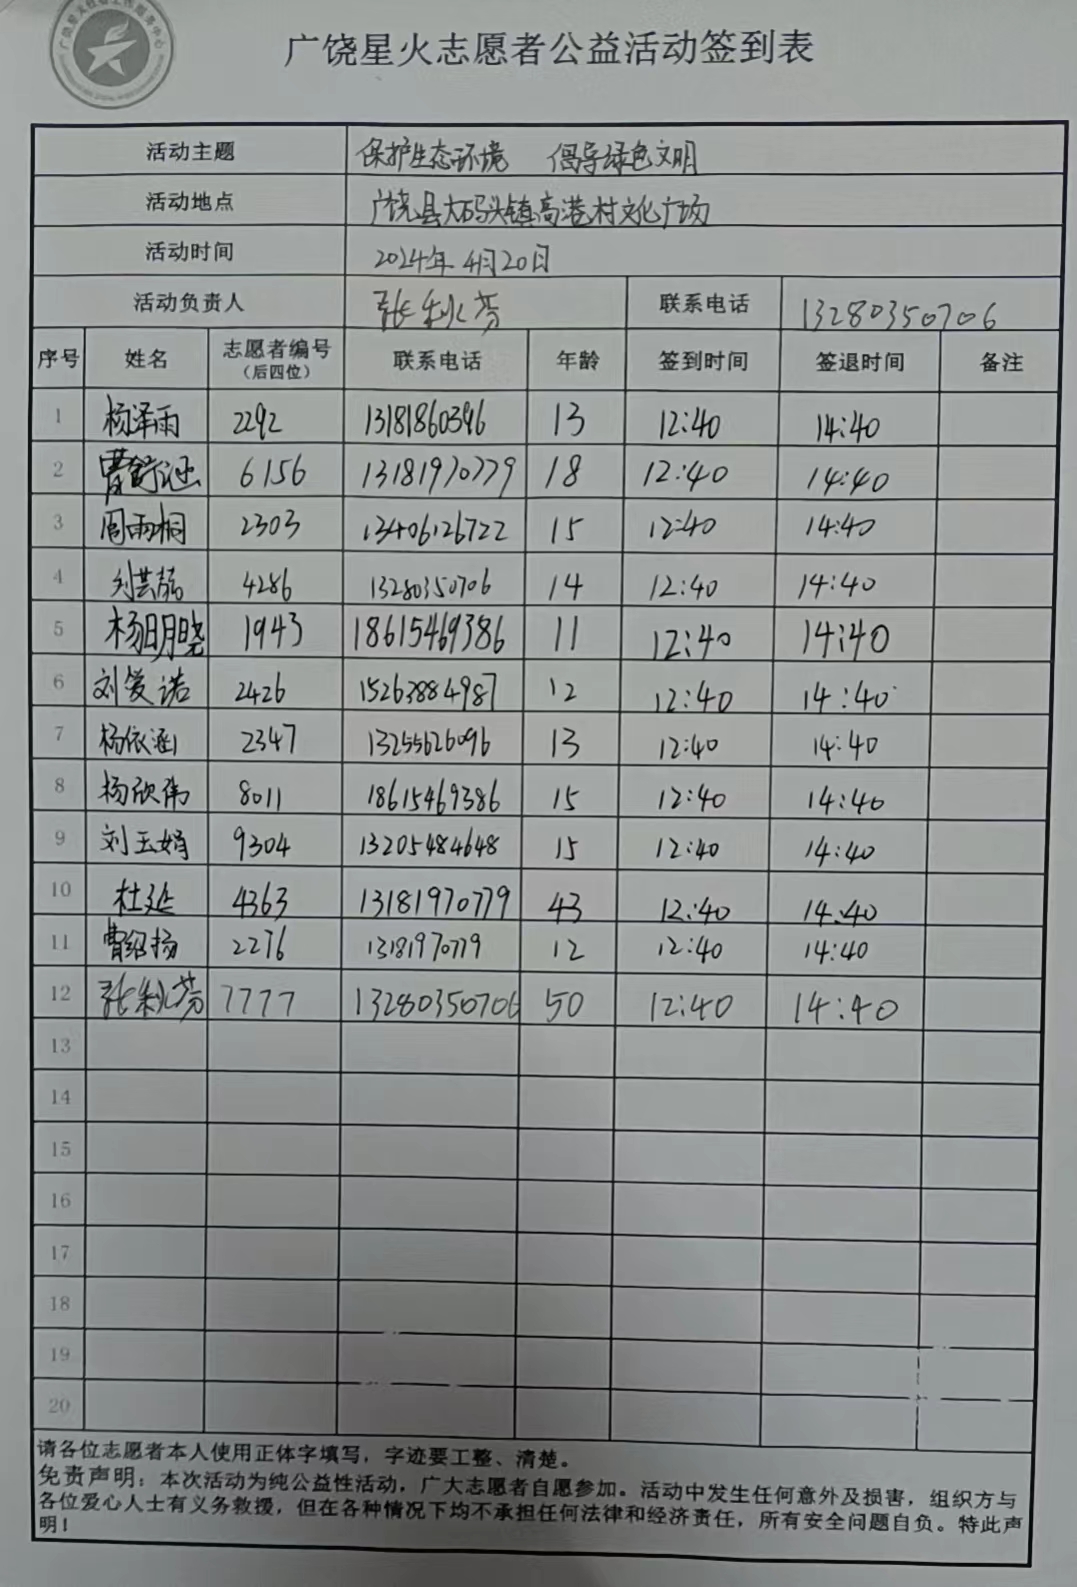 广饶星火志愿者公益活动签到表
活动主题 保护生态环境 倡导绿色文明
活动地点 广饶县大码头镇高港村文化广场
活动时间 2024年4月20日
活动负责人 张秋芳 联系电话 13280350706
序号 姓名 志愿者编号（后四位） 联系电话 年龄 签到时间 签退时间 备注
1 杨泽雨 2292 13181860396 13 12:40 14:40
2 曹舒涵 6156 13181970779 18 12:40 14:40
3 周雨桐 2303 13406126722 15 12:40 14:40
4 刘芸 4286 13280350706 14 12:40 14:40
5 杨明晓 1943 18615469386 11 12:40 14:40
6 刘爱诺 2426 15263884987 12 12:40 14:40
7 杨依涵 2347 13255626096 13 12:40 14:40
8 杨欣伟 8011 18615469386 15 12:40 14:40
9 刘玉娟 9304 13205484648 15 12:40 14:40
10 杜延 4363 13181970779 43 12:40 14:40
11 曹绍扬 2276 13181970779 12 12:40 14:40
12 张秋芳 7777 13280350706 50 12:40 14:40
13
14
15
16
17
18
19
20
请各位志愿者本人使用正体字填写，字迹要工整、清楚。
免责声明：本次活动为纯公益性活动，广大志愿者自愿参加。活动中发生任何意外及损害，组织方与
各位爱心人士有义务救援，但在各种情况下均不承担任何法律和经济责任，所有安全问题自负。特此声
明！